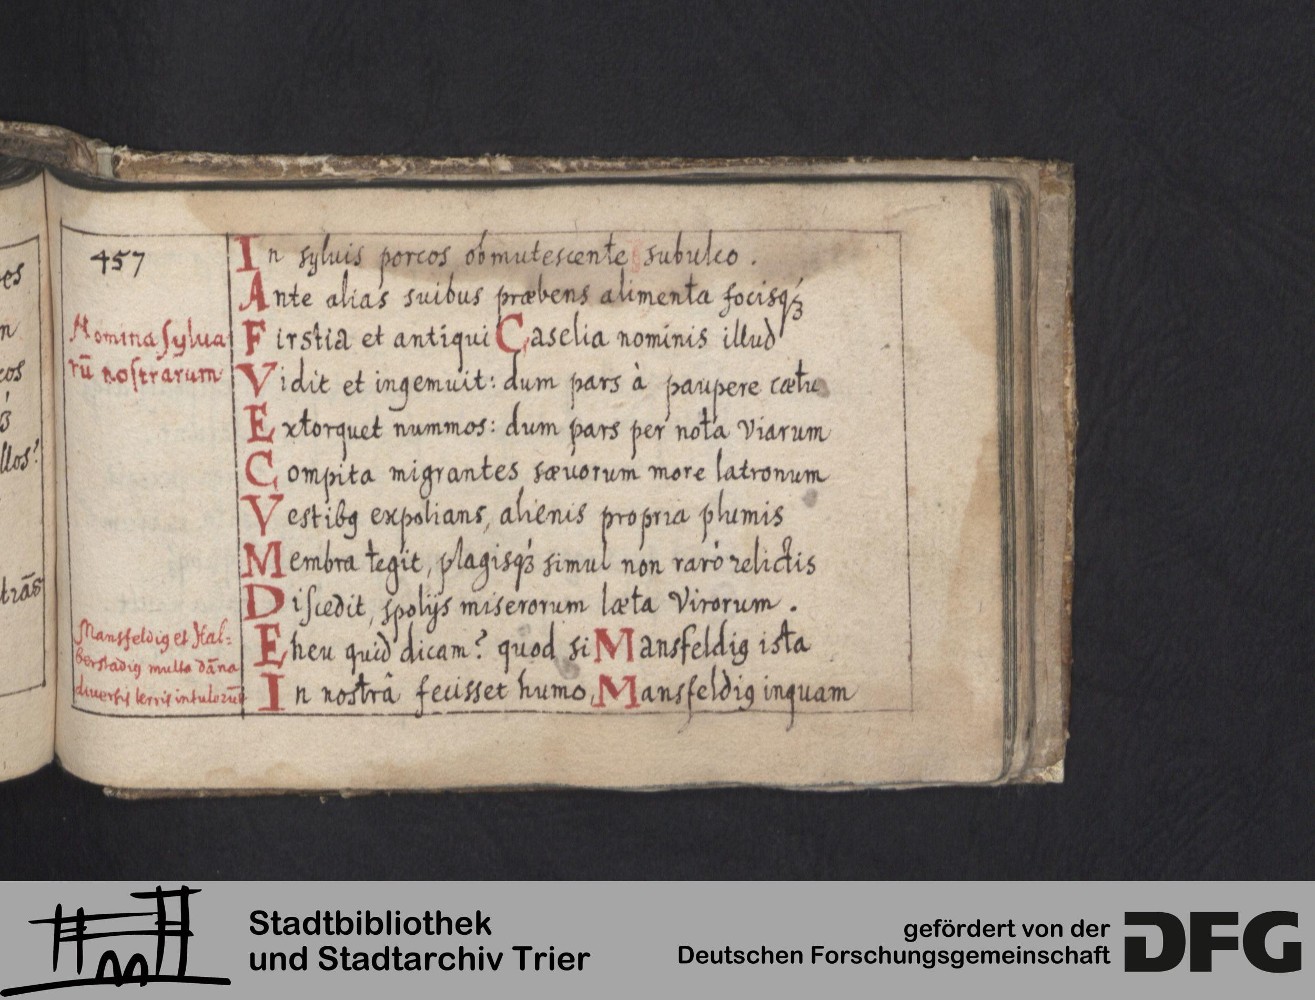 457
In syluis porcos obmutescente subulco .
Ante alias suibus præbens alimenta focisqꝫ
Nomina sylua
rū nostrarum
Firstia et antiqui Caselia nominis illud
Vidit et ingemuit: dum pars à paupere cætu
Extorquet nummos: dum pars per nota Viarum
Compita migrantes sæuorum more latronum
Vestibꝫ expolians, alienis propria plumis
Membra tegit, plagisqꝫ simul non rarò relictis
Discedit, spolijs miserorum læta Virorum .
Mansfeldiꝰ et Hal=
berstadiꝰ multa dāna
diuersis terris intulerūt
Eheu quid dicam? quod si Mansfeldiꝰ ista
In nostrâ fecisset humo, Mansfeldiꝰ inquam
es
n
cos
llos?
trās
Stadtbibliothek
und Stadtarchiv Trier
gefördert von der
Deutschen Forschungsgemeinschaft
DFG